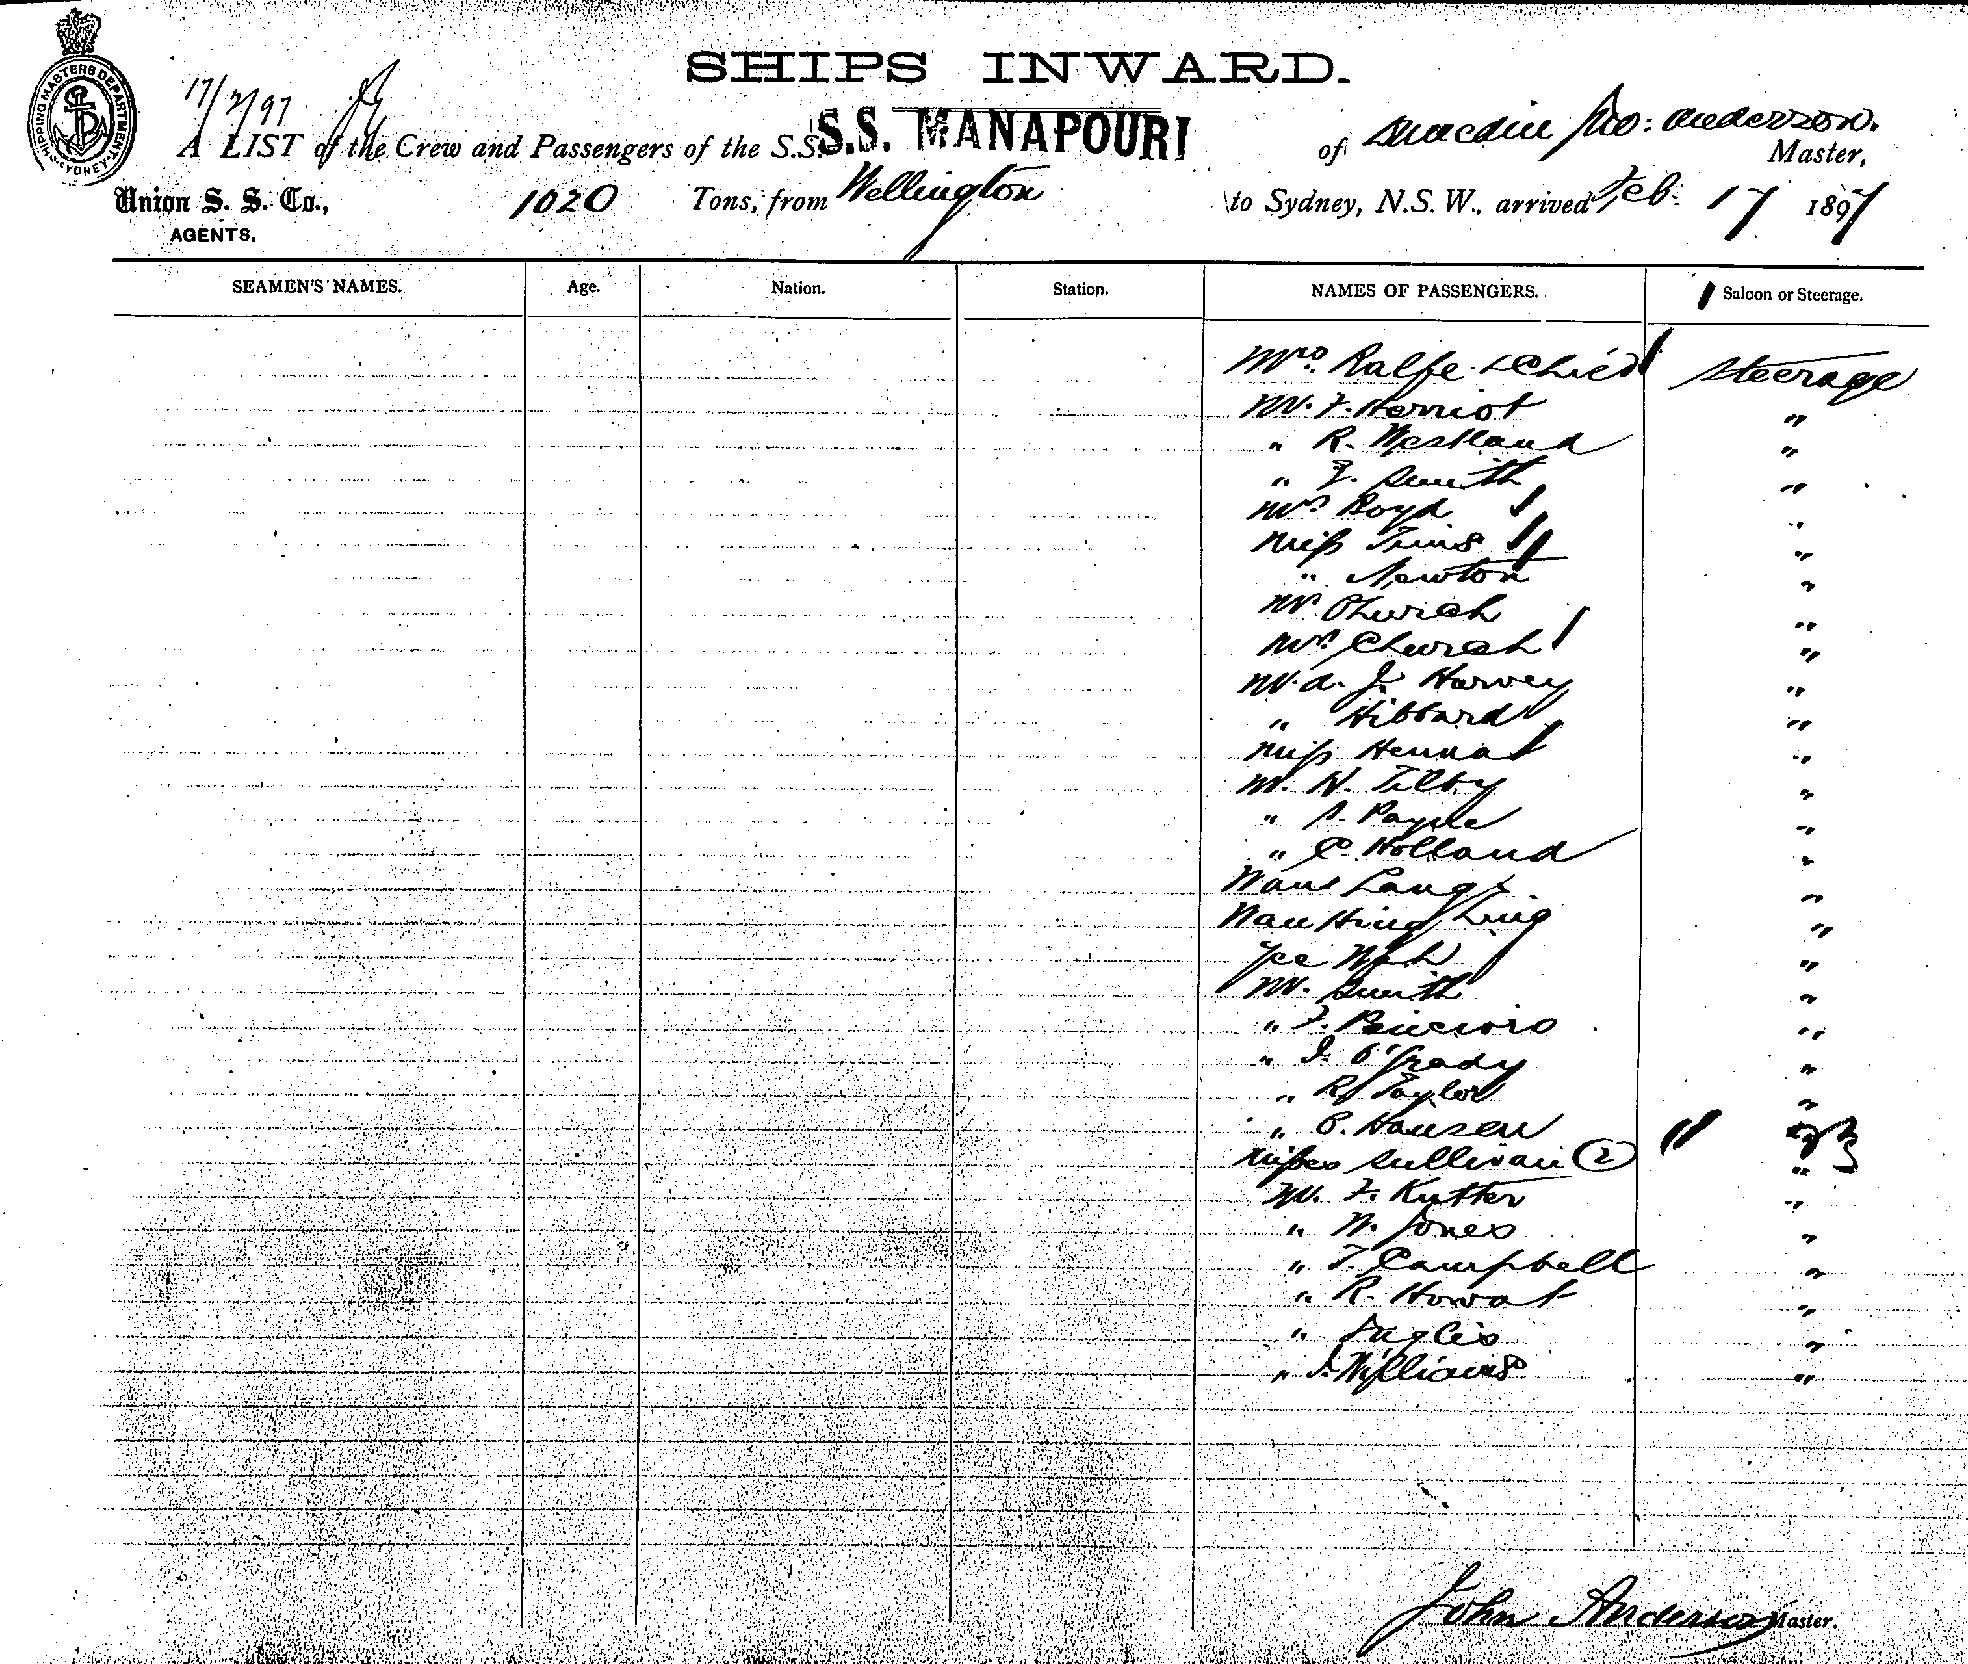 SHIPS INWARD.
SHIPPING MASTERS DEPARTMENT SYDNEY
17/2/97
A LIST of the Crew and Passengers of the S.S. S.S. MANAPOURI of Dunedin Jno: Anderson. Master,
Union S. S. Co., 1020 Tons, from Wellington to Sydney, N.S.W., arrived Feb: 17 1897
AGENTS.
SEAMEN'S NAMES. Age. Nation. Station. NAMES OF PASSENGERS. Saloon or Steerage.
Mrs. Ralfe & Child Steerage
Mr. F. Herriot "
" R. Westland "
" F. Smith "
Mrs Boyd "
Miss Tims "
" Newton "
Mr Church "
Mrs Church "
Mr. A. J. Harvey "
" Hibbard "
Miss Henna "
Mr. W. Tilby "
" S. Payne "
" C. Holland "
Lang "
Hing Ling "
Yee Wah "
Mr. Smith "
" F. "
" J. O'Grady "
" R. Taylor "
" P. Hansen "
Misses Sullivan (2) "
Mr. F. Kutter "
" W. Jones "
" T. Campbell "
" R. Howat "
" Inglis "
" J. Williams "
John Anderson Master.